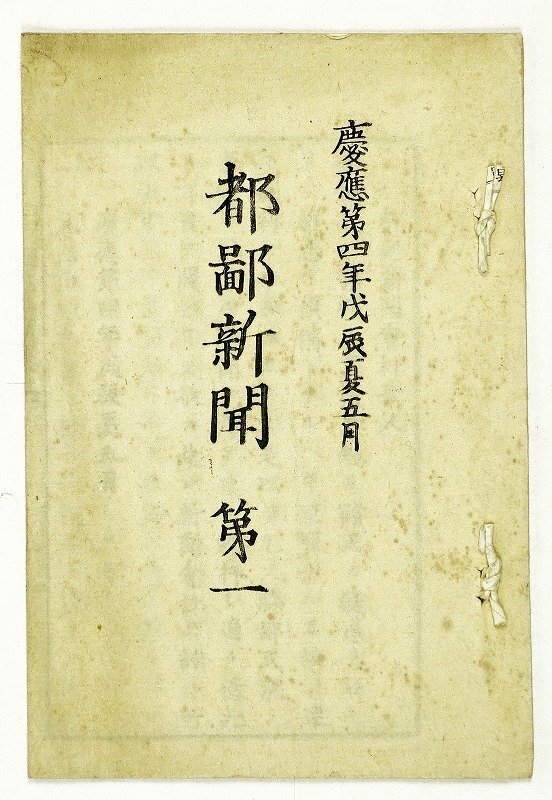 慶應第四年戊辰夏五月
都鄙新聞 第一